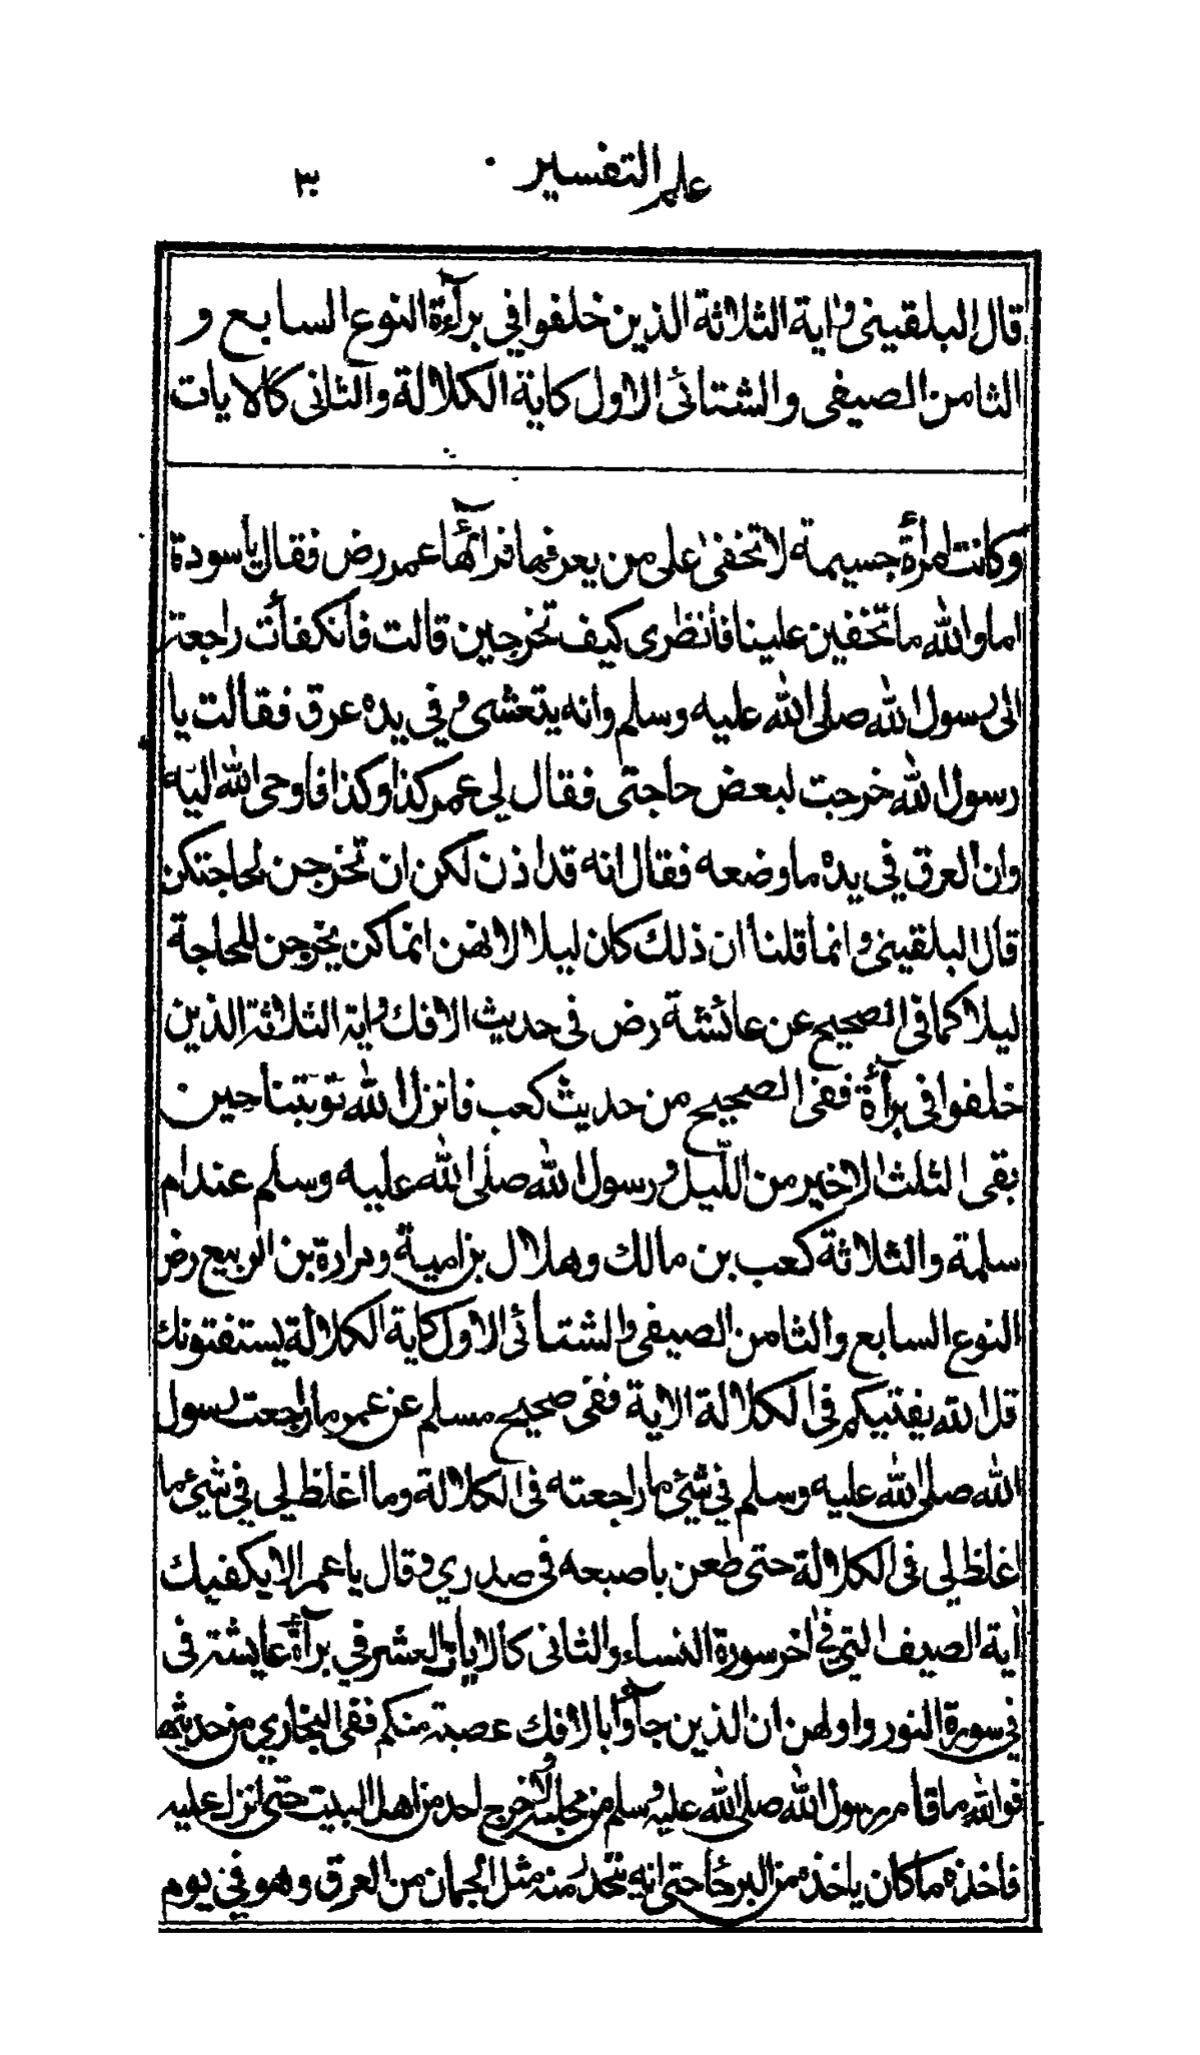 علم التفسير ٣٠
قال البلقيني واية الثلاثة الذين خلفوا في برآءة النوع السابع و
الثامن الصيفي والشتائي الاول كاية الكلالة والثاني كالايات
وكانت امرأة جسيمة لا تخفى على من يعرفها فرآئها عمر رض فقال يا سودة
اما والله ما تخفين علينا فانظرى كيف تخرجين قالت فانكفأت راجعة
الى رسول الله صلى الله عليه وسلم وانه يتعشى وفي يده عرق فقالت يا
رسول الله خرجت لبعض حاجتى فقال لي عمر كذا وكذا فاوحى الله اليه
وان العرق في يده ما وضعه فقال انه قد اذن لكن ان تخرجن لحاجتكن
قال البلقيني وانما قلنا ان ذلك كان ليلا لانهن انما كن يخرجن للحاجة
ليلا كما في الصحيح عن عائشة رض في حديث الافك واية الثلاثة الذين
خلفوا في برآءة ففي الصحيح من حديث كعب فانزل الله توبتنا حين
بقى الثلث الاخير من الليل ورسول الله صلى الله عليه وسلم عند ام
سلمة والثلاثة كعب بن مالك وهلال بن امية ومرارة بن الربيع رض
النوع السابع والثامن الصيفي والشتائي الاول كاية الكلالة يستفتونك
قل الله يفتيكم في الكلالة الاية ففي صحيح مسلم عن عمر ما راجعت رسول
الله صلى الله عليه وسلم في شئ ما راجعته في الكلالة وما اغلظ لي في شئ ما
اغلظ لي في الكلالة حتى طعن باصبعه في صدري وقال يا عمر الا يكفيك
اية الصيف التي في اخر سورة النساء والثاني كالايات العشر في برآءة عايشة في
في سورة النور واولهن ان الذين جآؤا بالافك عصبة منكم ففي البخاري من حديثها
فوالله ما قام رسول الله صلى الله عليه وسلم من مجلسه ولا خرج احد من اهل البيت حتى انزل عليه
فاخذه ما كان ياخذه من البرحا حتى انه يتحدر منه مثل الجمان من العرق وهو في يوم